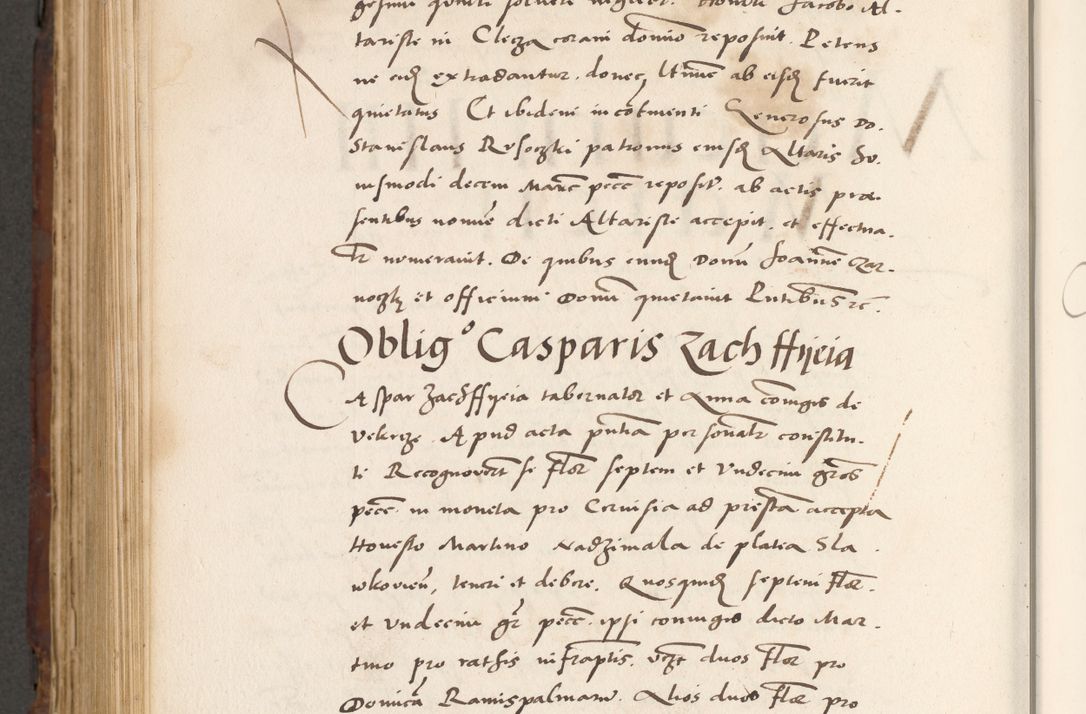 tariste in Clecza coram domino reposuit. Petens
ne eidē extradantur, donec, ltime ab eisdē fuerit
quietatus Et ibidem in cōtinenti Generosus Do.
Stanislaus Rosoczki patronus eiusdē Altaris Hu.
iusmodi decem Marc pecc reposit. ab actis prae.
sentibus nomine dicti Altariste accepit. et effectua.
lr numeravit. De quibus eundē Domū Joannē Czar.
noczky et officium Domū quietavit Pntibus rc.
Oblig⁰ Casparis Zach ffyeia
Caspar Zachffyeia tabernator et Anna coniuges de
Apud acta pntia personalr constitu.
ti Recognovert se flor septem et undecim gros
pecc in moneta pro Cervisia ad prestā accepta
Honesto Martino Radzimala de platea Sla.
wkovien, teneri et debere. Quosquidē septem flor.
et undecim gr pecc. ipsi coniuges dicto Mar.
tino pro rathis infraptis. vczt duos flor pro
Domicā Ramispalmarū. Alios duos flor pro